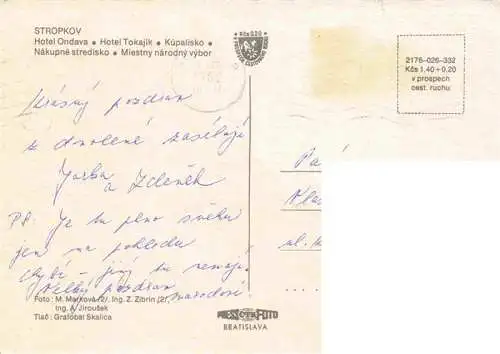 STROPKOV
Hotel Ondava • Hotel Tokajík • Kúpalisko •
Nákupné stredisko • Miestny národný výbor
Kčs 0,20
2176-026-332
Kčs 1,40 + 0,20
v prospech
cest. ruchu
Krásný pozdrav
z dovolené zasílají
Jarka
a Zdeněk
PS. Je tu plno sněhu
jen na pohledu
chybí - jiný tu nemají
Velký pozdrav
Foto: M. Marková /2/, Ing. Z. Zibrín /2/,
Ing. A. Jiroušek
Tlač: Grafobal Skalica
PRESSFOTO
BRATISLAVA